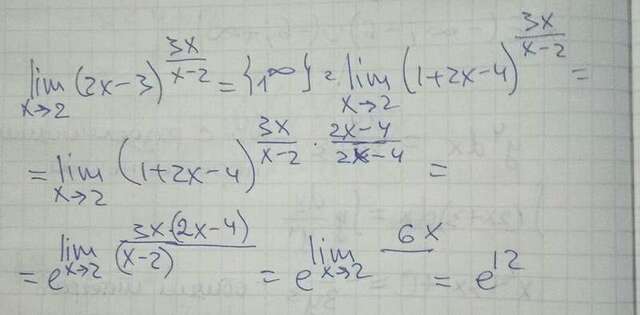 lim x→2 (2x-3)^(3x/(x-2)) = {1^∞} = lim x→2 (1+2x-4)^(3x/(x-2)) =
= lim x→2 (1+2x-4)^(3x/(x-2) · (2x-4)/(2x-4)) =
= e^(lim x→2 3x·(2x-4)/(x-2)) = e^(lim x→2 6x) = e^12